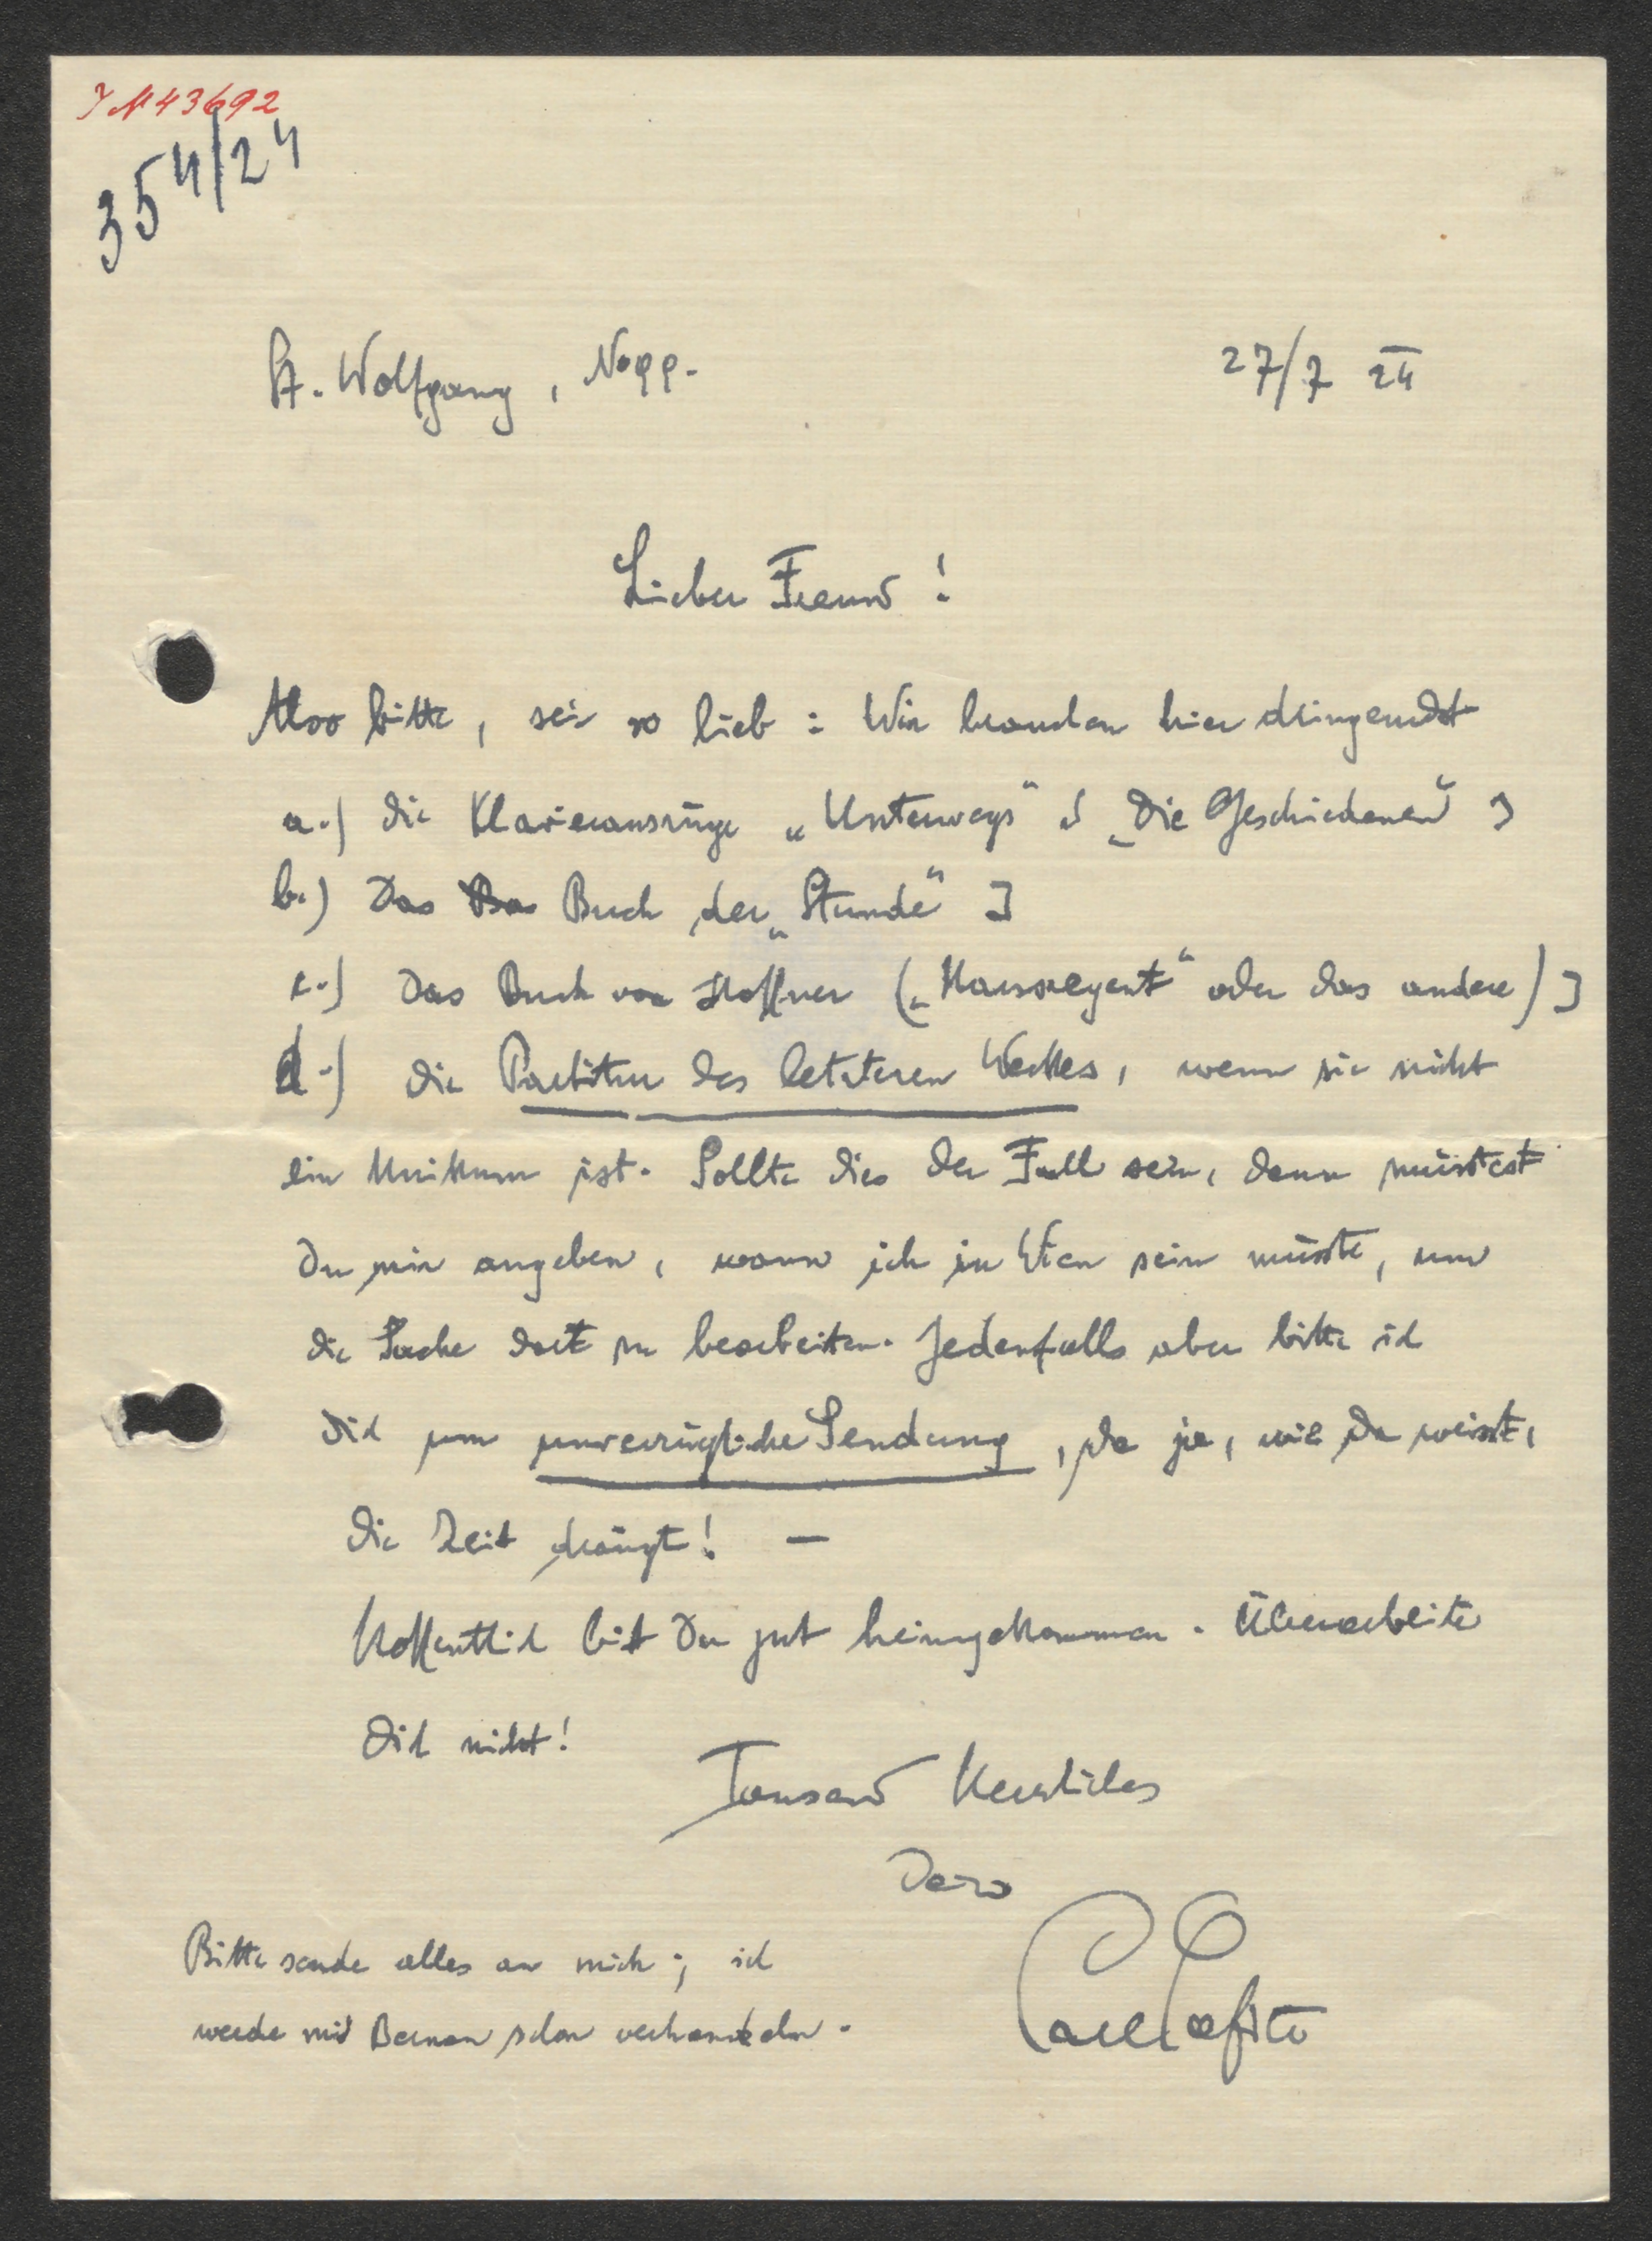 IN 43692
354/24
St. Wolfgang, 27/7 24
Lieber Freund!
Also bitte, sei so lieb: Wir brauchen hier dringendst
a.) die Klavierauszüge „Unterwegs“ & „Die Geschiedenen“;
b.) Das Buch der „Stunde“;
c.) Das Buch von Hoffner („Hausregent“ oder das andere);
d.) die Partitur des letzteren Werkes, wenn sie nicht
ein Unikum ist. Sollte dies der Fall sein, dann müsstest
Du mir angeben, wann ich in Wien sein müsste, um
die Sache dort zu bearbeiten. Jedenfalls aber bitte ich
Dich um unverzügliche Sendung, da ja, wie Du weisst,
die Zeit drängt! —
Hoffentlich bist Du gut heimgekommen. Überarbeite
Dich nicht!
Tausend Herzliches
Dein
Carl Lafite
Bitte sende alles an mich; ich
werde mit schon verhandeln.